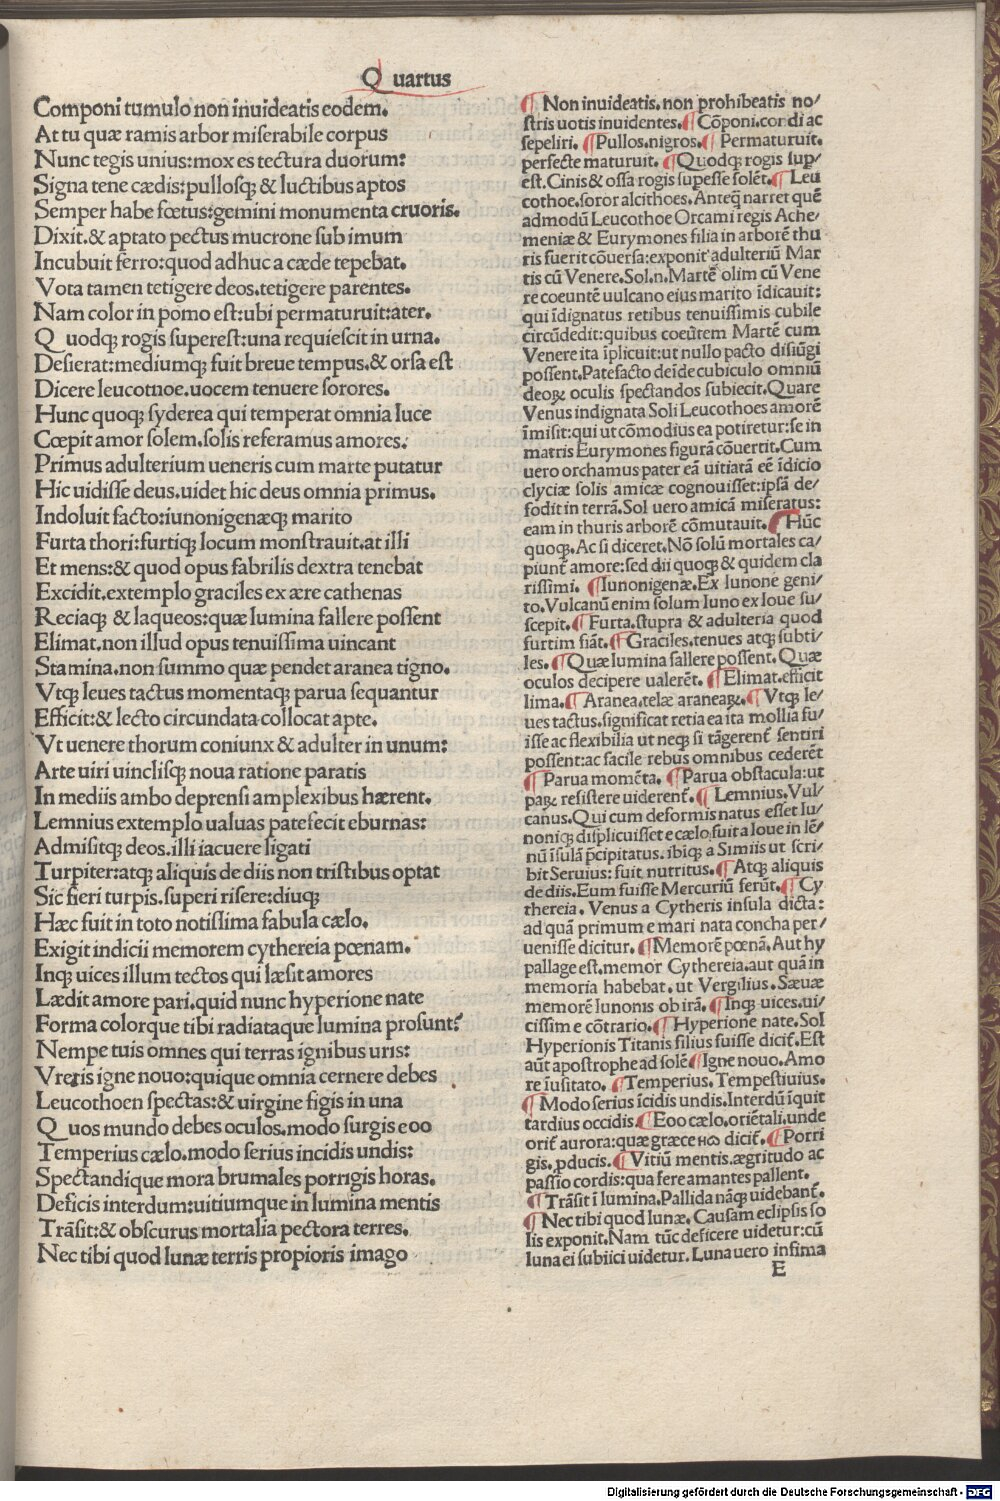 Quartus
Componi tumulo non inuideatis eodem.
At tu quæ ramis arbor miserabile corpus
Nunc tegis unius: mox es tectura duorum:
Signa tene cædis: pullosq; & luctibus aptos
Semper habe fœtus: gemini monumenta cruoris.
Dixit. & aptato pectus mucrone sub imum
Incubuit ferro: quod adhuc a cæde tepebat.
Vota tamen tetigere deos. tetigere parentes.
Nam color in pomo est: ubi permaturuit: ater.
Quodq; rogis superest: una requiescit in urna.
Desierat: mediumq; fuit breue tempus. & orsa est
Dicere leucotnoe. uocem tenuere sorores.
Hunc quoq; syderea qui temperat omnia luce
Cœpit amor solem. solis referamus amores:
Primus adulterium ueneris cum marte putatur
Hic uidisse deus. uidet hic deus omnia primus.
Indoluit facto: iunonigenæq; marito
Furta thori: furtiq; locum monstrauit. at illi
Et mens: & quod opus fabrilis dextra tenebat
Excidit. extemplo graciles ex ære cathenas
Reciaq; & laqueos: quæ lumina fallere possent
Elimat. non illud opus tenuissima uincant
Stamina. non summo quæ pendet aranea tigno.
Vtq; leues tactus momentaq; parua sequantur
Efficit: & lecto circundata collocat apte.
Vt uenere thorum coniunx & adulter in unum:
Arte uiri uinclisq; noua ratione paratis
In mediis ambo deprensi amplexibus hærent.
Lemnius extemplo ualuas patefecit eburnas:
Admisitq; deos. illi iacuere ligati
Turpiter: atq; aliquis de diis non tristibus optat
Sic fieri turpis. superi risere: diuq;
Hæc fuit in toto notissima fabula cælo.
Exigit indicii memorem cythereia pœnam.
Inq; uices illum tectos qui læsit amores
Lædit amore pari. quid nunc hyperione nate
Forma colorque tibi radiataque lumina prosunt?
Nempe tuis omnes qui terras ignibus uris:
Vreris igne nouo: quique omnia cernere debes
Leucothoen spectas: & uirgine figis in una
Quos mundo debes oculos. modo surgis eoo
Temperius cælo. modo serius incidis undis:
Spectandique mora brumales porrigis horas.
Deficis interdum: uitiumque in lumina mentis
Trāsit: & obscurus mortalia pectora terres.
Nec tibi quod lunæ terris propioris imago
¶ Non inuideatis. non prohibeatis no/
stris uotis inuidentes. ¶ Cōponi. condi ac
sepeliri. ¶ Pullos. nigros. ¶ Permaturuit.
perfecte maturuit. ¶ Quodq; rogis sup/
est. Cinis & ossa rogis supesse solēt. ¶ Leu
cothoe. soror alcithoes. Anteq̄ narret quē
admodū Leucothoe Orcami regis Ache/
meniæ & Eurymones filia in arborē thu
ris fuerit cōuersa: exponit adulteriū Mar
tis cū Venere. Sol. n. Martē olim cū Vene
re coeuntē uulcano eius marito īdicauit:
qui īdignatus retibus tenuissimis cubile
circūdedit: quibus coeūtem Martē cum
Venere ita īplicuit: ut nullo pacto disiūgi
possent. Patefacto deīde cubiculo omniū
deoꝝ oculis spectandos subiecit. Quare
Venus indignata Soli Leucothoes amorē
īmisit: qui ut cōmodius ea potiretur: se in
matris Eurymones figurā cōuertit. Cum
uero orchamus pater eā uitiatā eē īdicio
clyciæ solis amicæ cognouisset: ipsā de/
fodit in terrā. Sol uero amicā miseratus:
eam in thuris arborē cōmutauit. ¶ Hūc
quoq;. Ac si diceret. Nō solū mortales ca/
piunt amore: sed dii quoq; & quidem cla
rissimi. ¶ Iunonigenæ. Ex Iunone geni/
to. Vulcanū enim solum Iuno ex Ioue su/
scepit. ¶ Furta. stupra & adulteria quod
furtim fiāt. ¶ Graciles. tenues atq; subti/
les. ¶ Quæ lumina fallere possent. Quæ
oculos decipere ualerēt. ¶ Elimat. efficit
lima. ¶ Aranea. telæ araneaꝝ. ¶ Vtq; le/
ues tactus. significat retia ea ita mollia fu/
isse ac flexibilia ut neq; si tāgerent sentiri
possent: ac facile rebus omnibus cederēt
¶ Parua momēta. ¶ Parua obstacula: ut
paꝝ resistere uiderent. ¶ Lemnius. Vul/
canus. Qui cum deformis natus esset Iu/
noniq; displicuisset e cælo fuit a Ioue in lē/
nū īsulā p̄cipitatus. ibiq; a Simiis ut scri/
bit Seruius: fuit nutritus. ¶ Atq; aliquis
de diis. Eum fuisse Mercuriū ferūt. ¶ Cy
thereia. Venus a Cytheris insula dicta:
ad quā primum e mari nata concha per/
uenisse dicitur. ¶ Memorē pœnā. Aut hy
pallage est. memor Cythereia. aut quā in
memoria habebat. ut Vergilius. Sæuæ
memorē Iunonis ob irā. ¶ Inq; uices. ui/
cissim e cōtrario. ¶ Hyperione nate. Sol
Hyperionis Titanis filius fuisse dicit. Est
aūt apostrophe ad solē ¶ Igne nouo. Amo
re īusitato. ¶ Temperius. Tempestiuius.
¶ Modo serius īcidis undis. Interdū īquit
tardius occidis. ¶ Eoo cælo. oriētali. unde
orit aurora: quæ græce ηωσ dicit. ¶ Porri
gis. pducis. ¶ Vitiū mentis. ægritudo ac
passio cordis: qua fere amantes pallent.
¶ Trāsit ī lumina. Pallida nāq; uidebant.
¶ Nec tibi quod lunæ. Causam eclipsis so
lis exponit. Nam tūc deficere uidetur: cū
luna ei subiici uidetur. Luna uero infima
E
Digitalisierung gefördert durch die Deutsche Forschungsgemeinschaft - DFG